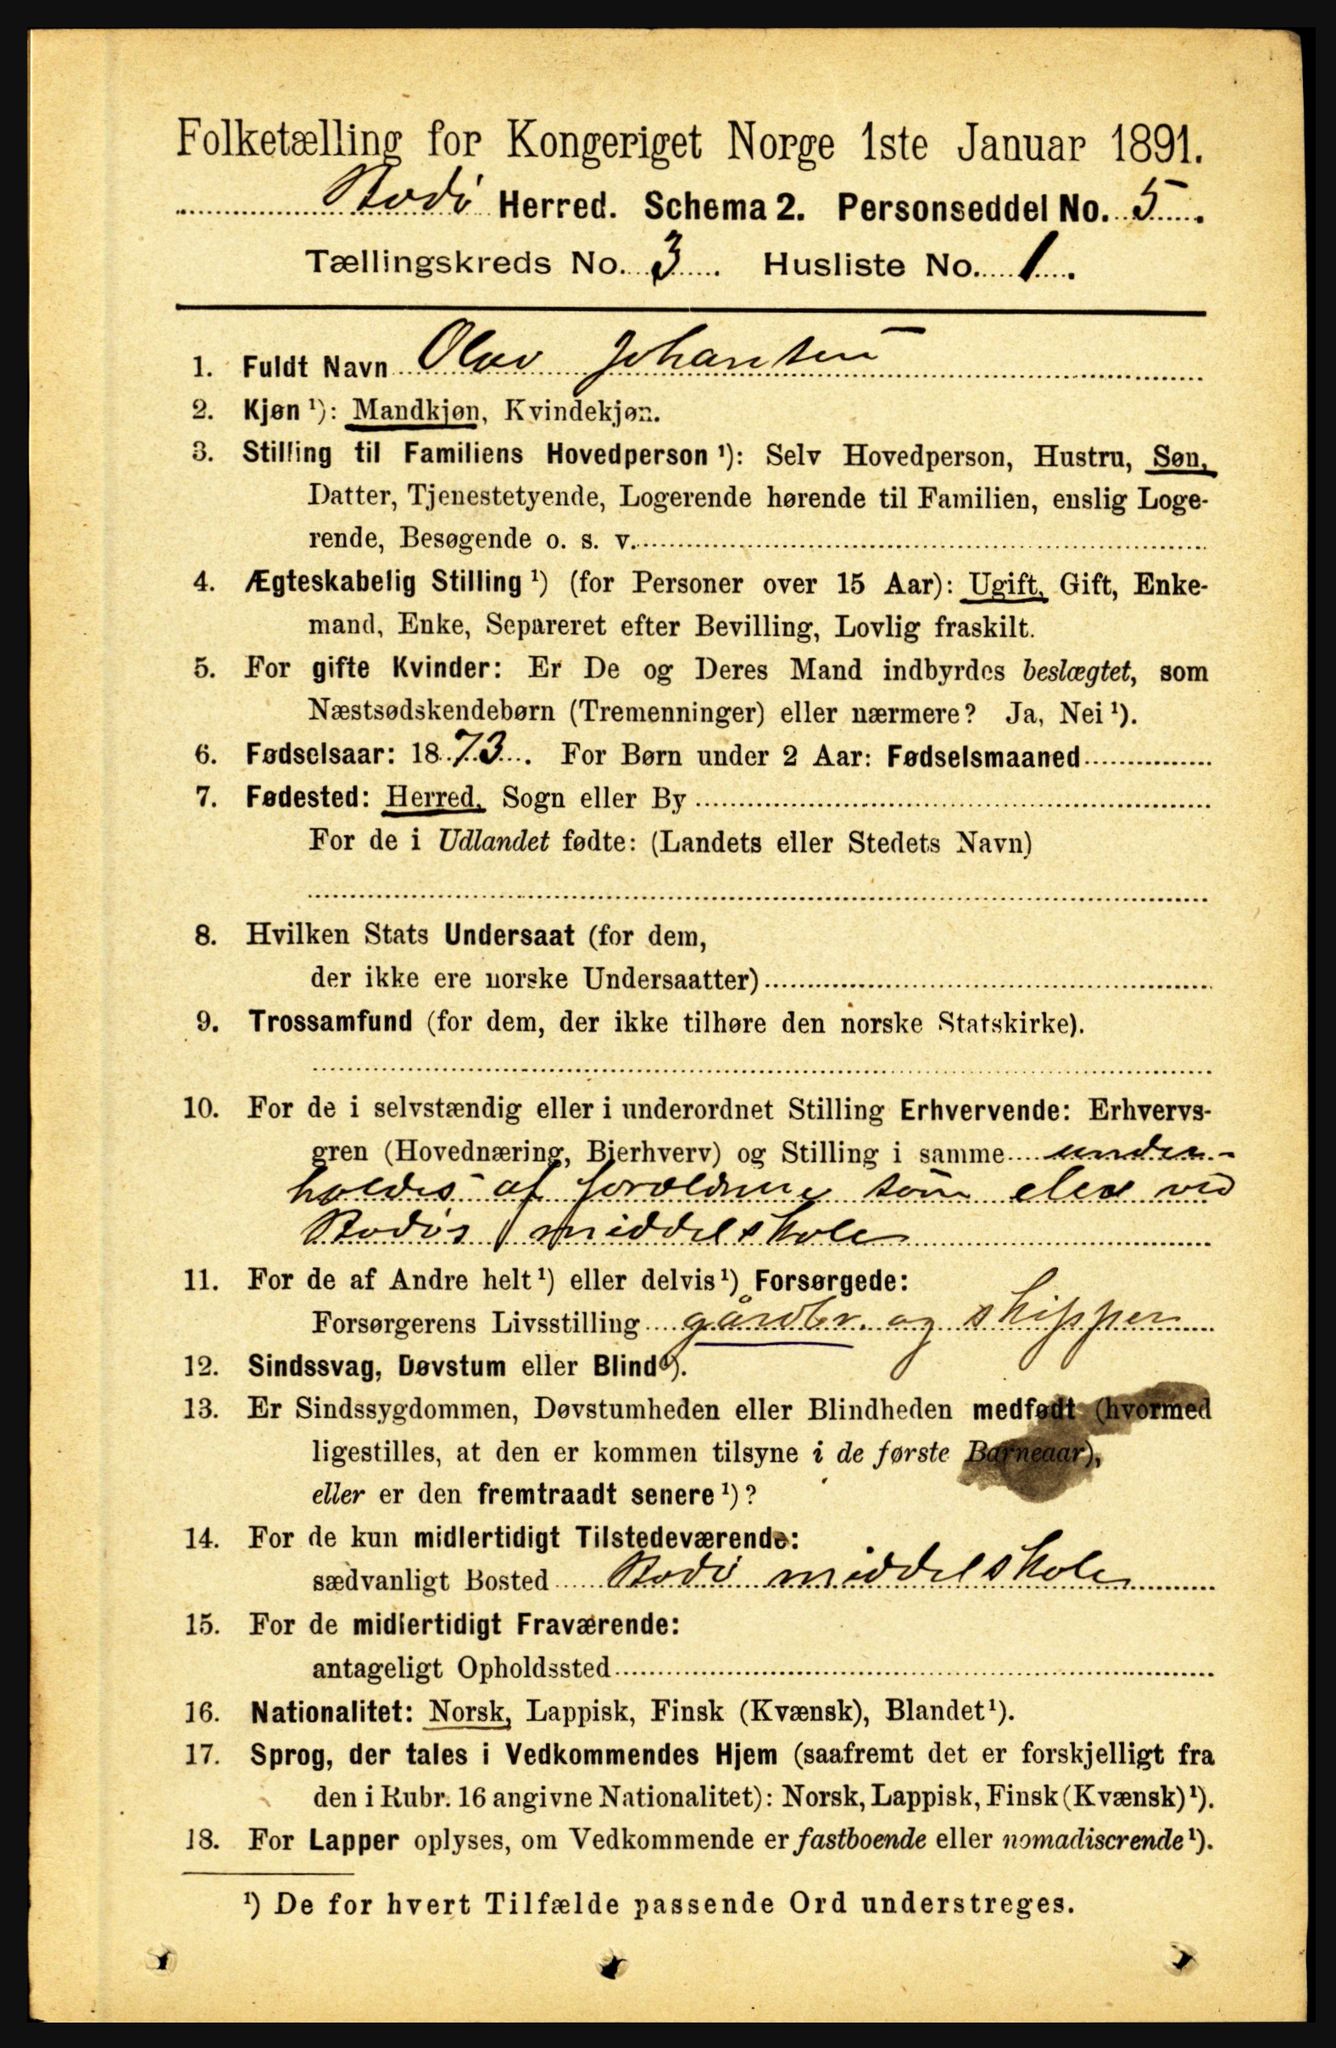 Folketælling for Kongeriget Norge 1ste Januar 1891.
Bodø Herred. Schema 2. Personseddel No. 5.
Tællingskreds No. 3. Husliste No. 1.
1. Fuldt Navn Olav Johansen
2. Kjøn ¹): Mandkjøn, Kvindekjøn.
3. Stilling til Familiens Hovedperson ¹): Selv Hovedperson, Hustru, Søn,
Datter, Tjenestetyende, Logerende hørende til Familien, enslig Loge-
rende, Besøgende o. s. v.
4. Ægteskabelig Stilling ¹) (for Personer over 15 Aar): Ugift, Gift, Enke-
mand, Enke, Separeret efter Bevilling, Lovlig fraskilt.
5. For gifte Kvinder: Er De og Deres Mand indbyrdes beslægtet, som
Næstsødskendebørn (Tremenninger) eller nærmere? Ja, Nei ¹).
6. Fødselsaar: 1873. For Børn under 2 Aar: Fødselsmaaned
7. Fødested: Herred, Sogn eller By
For de i Udlandet fødte: (Landets eller Stedets Navn)
8. Hvilken Stats Undersaat (for dem,
der ikke ere norske Undersaatter)
9. Trossamfund (for dem, der ikke tilhøre den norske Statskirke).
10. For de i selvstændig eller i underordnet Stilling Erhvervende: Erhvervs-
gren (Hovednæring, Bierhverv) og Stilling i samme under-
holdes af forældrene som elev ved
Bodøs middelskole
11. For de af Andre helt ¹) eller delvis ¹) Forsørgede:
Forsørgerens Livsstilling gårdbr. og skipper
12. Sindssvag, Døvstum eller Blind ¹).
13. Er Sindssygdommen, Døvstumheden eller Blindheden medfødt (hvormed
ligestilles, at den er kommen tilsyne i de første Barneaar),
eller er den fremtraadt senere ¹)?
14. For de kun midlertidigt Tilstedeværende:
sædvanligt Bosted Bodø middelskole
15. For de midlertidigt Fraværende:
antageligt Opholdssted
16. Nationalitet: Norsk, Lappisk, Finsk (Kvænsk), Blandet ¹).
17. Sprog, der tales i Vedkommendes Hjem (saafremt det er forskjelligt fra
den i Rubr. 16 angivne Nationalitet): Norsk, Lappisk, Finsk (Kvænsk) ¹).
18. For Lapper oplyses, om Vedkommende er fastboende eller nomadiserende ¹).
¹) De for hvert Tilfælde passende Ord understreges.